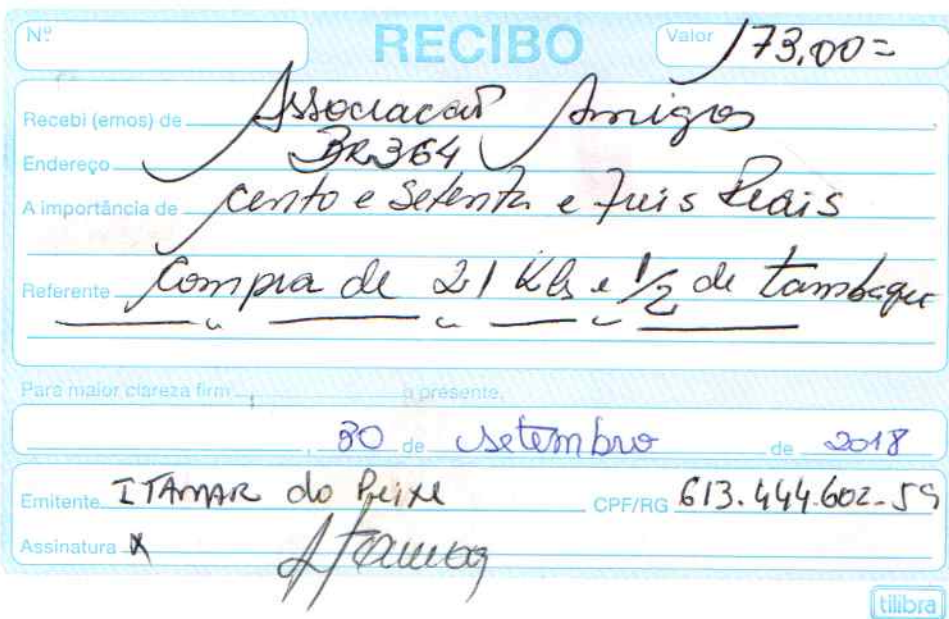 Nº RECIBO Valor 173,00=
Recebi (emos) de Associacaõ Amigos
Endereço BR364
A importância de cento e setenta e treis Reais
Referente Compra de 21 Kls e 1/2 de tambaqui
Para maior clareza firm o presente,
30 de setembro de 2018
Emitente ITAMAR do Peixe CPF/RG 613.444.602-59
Assinatura x Itamar
tilibra